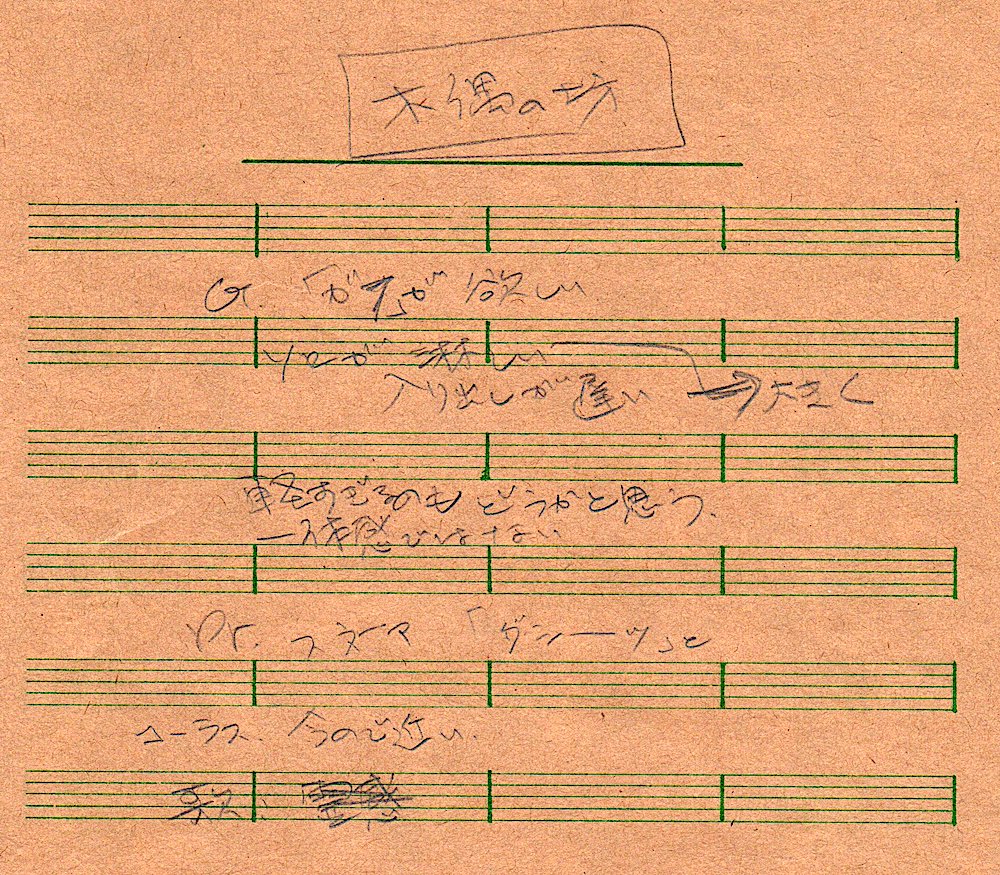 木偶の坊
G. 「ガッ」が欲しい
ソロが淋しい
入り出しが遅い → 大きく
軽すぎるのもどうかと思う.
一体感ではない
Dr. スネア 「ダシーッ」と
コーラス. 今ので近い.
歌、